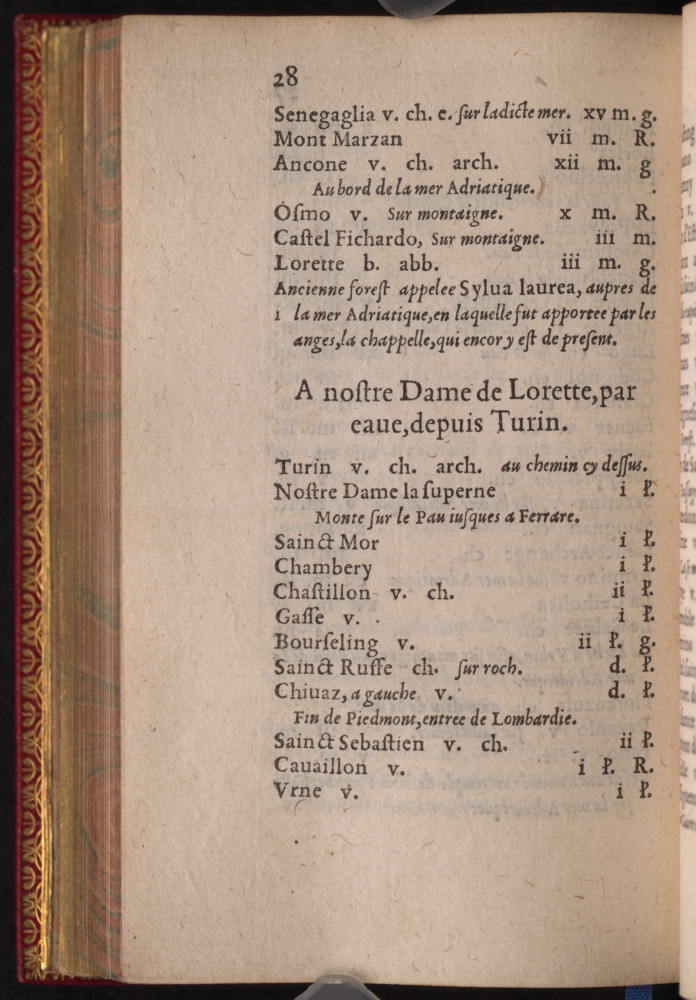 28
Senegaglia v. ch. e. ſur ladicte mer. xv m. g.
Mont Marzan vii m. R.
Ancone v. ch. arch. xii m. g
Au bord de la mer Adriatique.
Oſmo v. Sur montaigne. x m. R.
Caſtel Fichardo, Sur montaigne. iii m.
Lorette b. abb. iii m. g.
Ancienne foreſt appelee Sylua laurea, aupres de
la mer Adriatique,en laquelle fut apportee par les
anges,la chappelle,qui encor y eſt de preſent.
A noſtre Dame de Lorette,par
eaue,depuis Turin.
Turin v. ch. arch. au chemin cy deſſus.
Noſtre Dame la ſuperne i ł.
Monte ſur le Pau iuſques a Ferrare.
Sainct Mor i ł.
Chambery i ł.
Chaſtillon v. ch. ii ł.
Gaſſe v. i ł.
Bourſeling v. ii ł. g.
Sainct Ruffe ch. ſur roch. d. ł.
Chiuaz, a gauche v. d. ł.
Fin de Piedmont,entree de Lombardie.
Sainct Sebaſtien v. ch. ii ł.
Cauaillon v. i ł. R.
Vrne v. i ł.